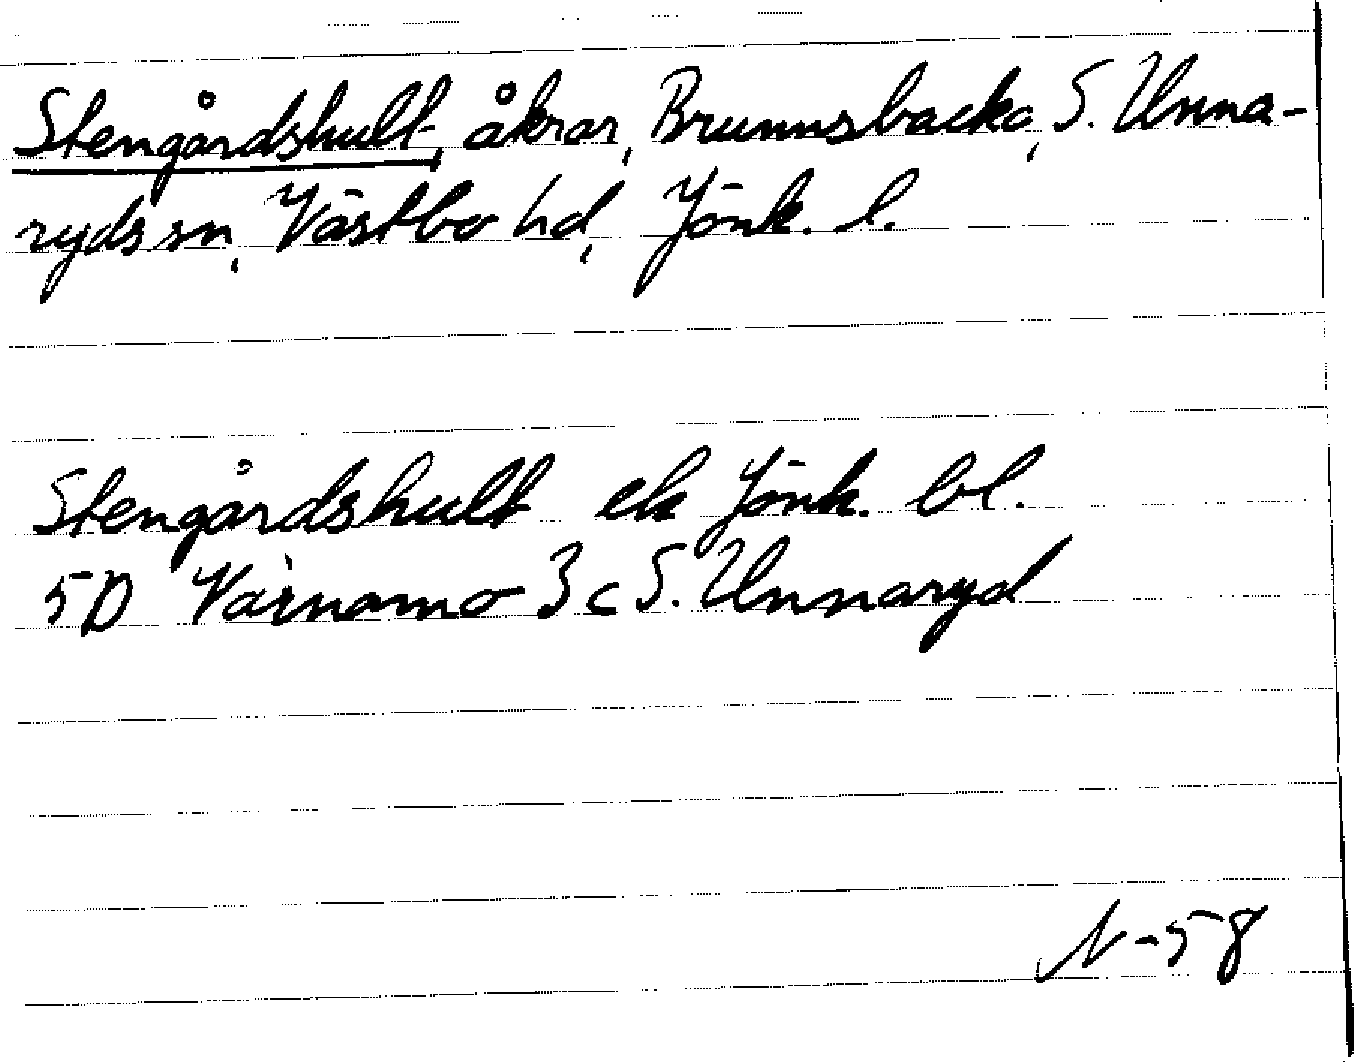 Stengårdshult, åkrar, Brunnsbacka, S. Unna-
ryds sn, Västbo hd, Jönk. l.
Stengårdshult ek Jönk. bl.
5D Värnamo 3c S. Unnaryd
N-58